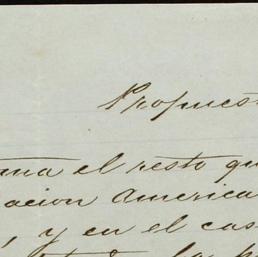 Propuest
ana el resto qu
acion America
, y en el cas
la p